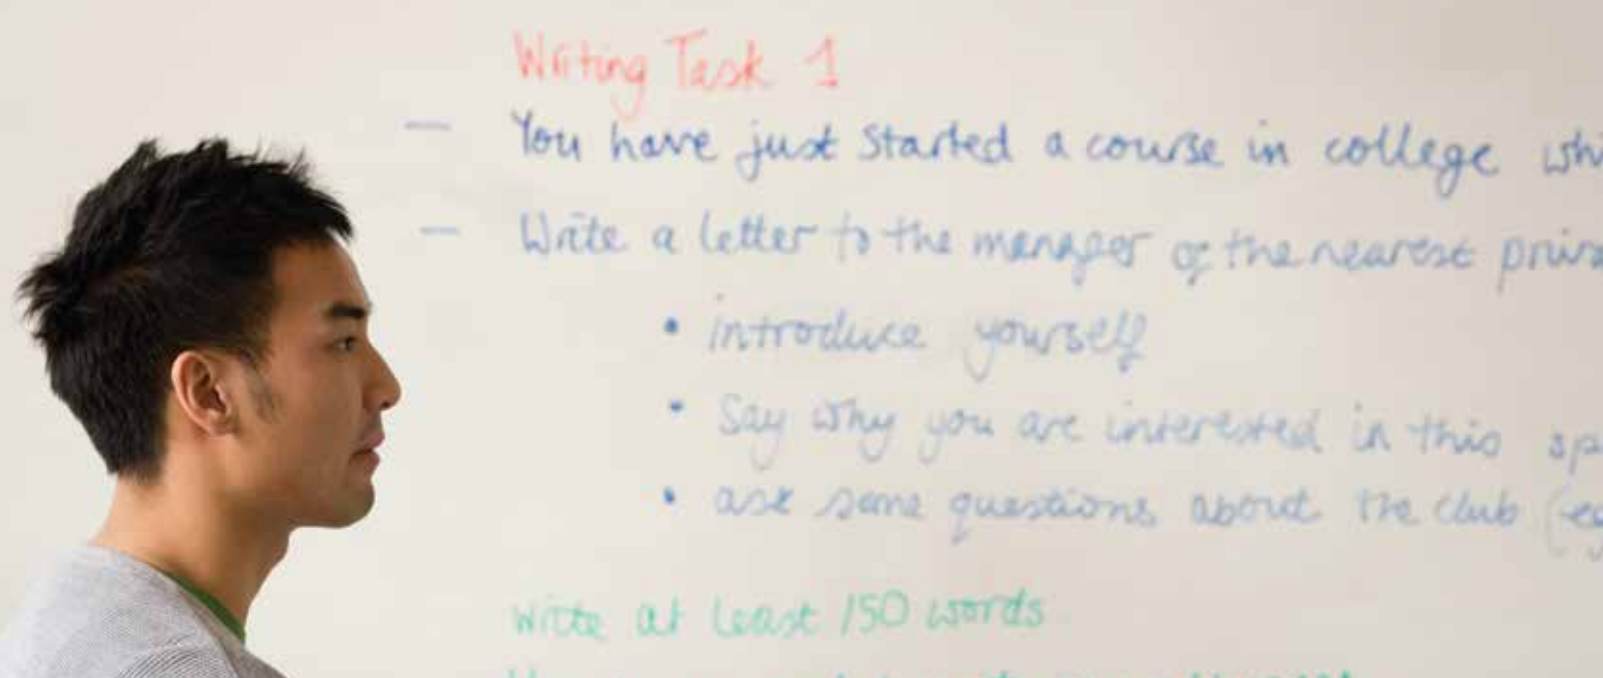 Writing Task 1
— You have just started a course in college whi
— Write a letter to the manager of the nearest priva
• introduce yourself
• Say why you are interested in this sp
• ask some questions about the club (eg
write at least 150 words